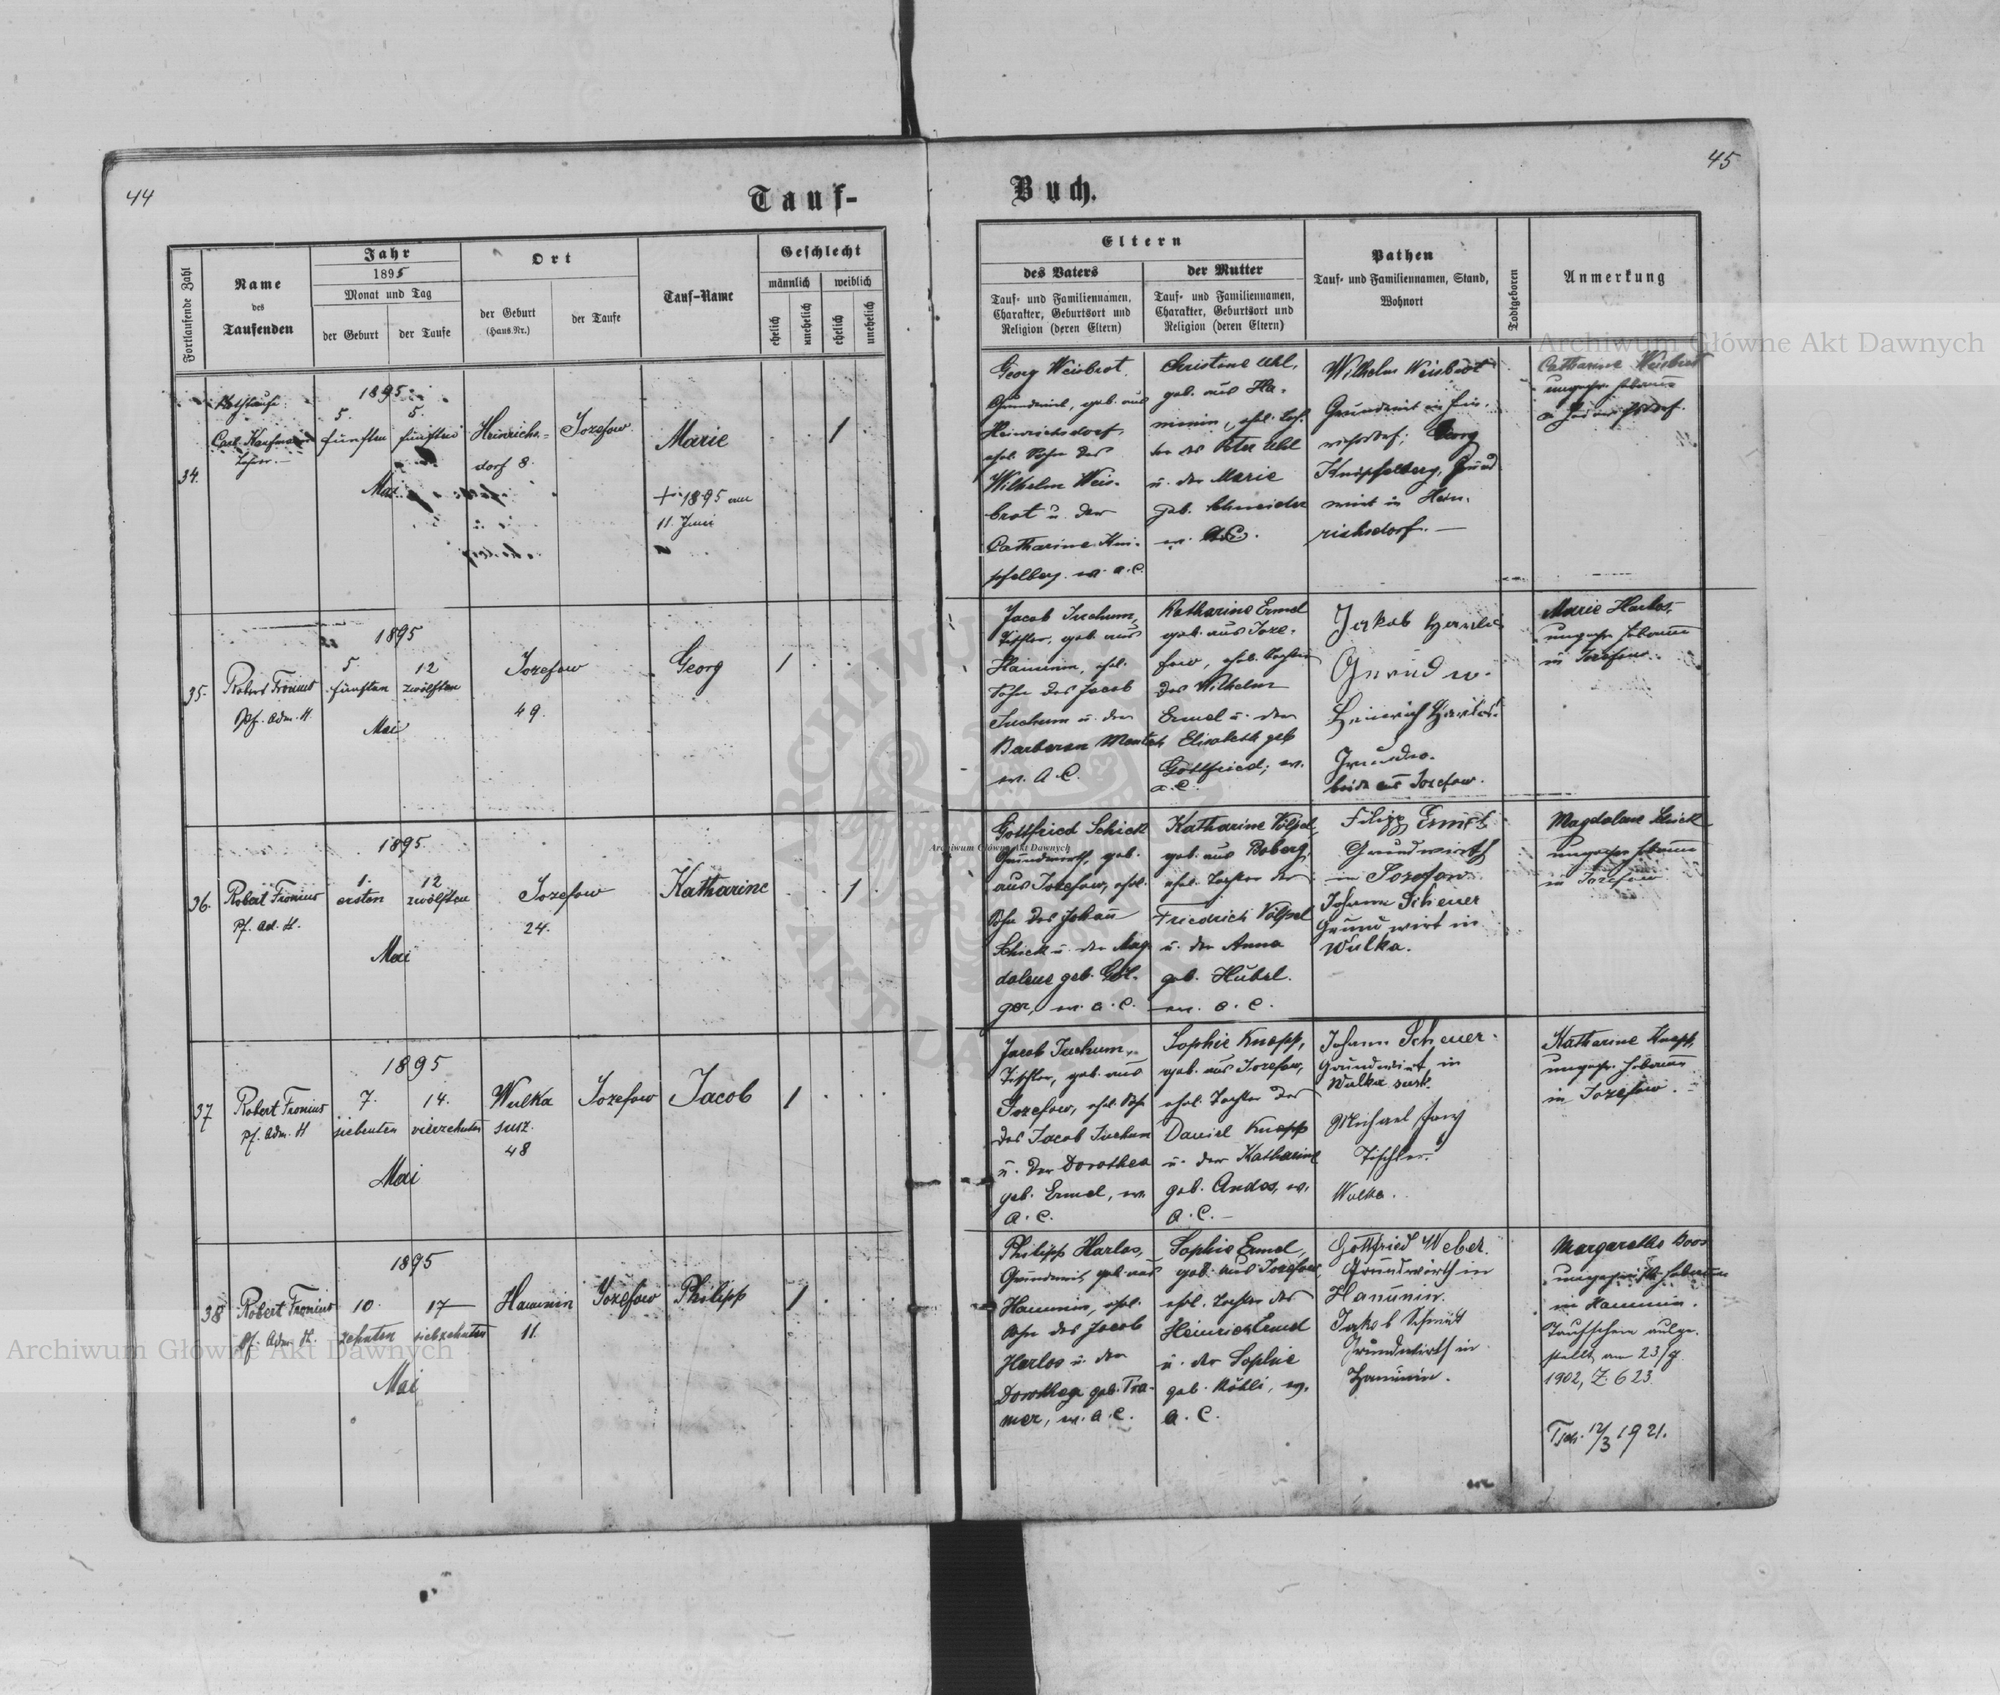 44
45
Tauf-
Buch.
Fortlaufende Zahl
Name
des
Taufenden
Jahr
1895
Monat und Tag
der Geburt
der Taufe
Ort
der Geburt
(Haus-Nr.)
der Taufe
Tauf-Name
Geschlecht
männlich
weiblich
ehelich
unehelich
ehelich
unehelich
Eltern
des Vaters
der Mutter
Tauf- und Familiennamen,
Charakter, Geburtsort und
Religion (deren Eltern)
Tauf- und Familiennamen,
Charakter, Geburtsort und
Religion (deren Eltern)
Pathen
Tauf- und Familiennamen, Stand,
Wohnort
Todtgeboren
Anmerkung
34.
Nothtaufe
Carl Kaufmann
Lehrer.
1895
5. 5.
fünften fünften
Mai
Heinrichs-
dorf 8.
Jozefow
Marie
+ 1895 am
11. Juni
1
Georg Weisbrot
Grundwirt, geb. aus
Heinrichsdorf,
ehl. Sohn des
Wilhelm Weis-
brot u. der
Catharine Kni-
pfelberg. ev. A.C.
Christine Uhl,
geb. aus Ha-
minin, ehl. Toch-
ter des Peter Uhl
u. der Marie
geb. Schneider
ev. A.C.
Wilhelm Weisbrot
Grundwirt in Hein-
richsdorf; Georg
Knipfelberg, Grund
wirt in Hein-
richsdorf. —
Catharine Weisbrot
ungepr. Hebamme
35.
Robert Fronius
Pf. Adm. H.
1895
5. 12
fünften zwölften
Mai
Jozefow
49.
Georg
1
Jacob Juchum,
Tischler, geb. aus
Haminin, ehl.
Sohn des Jacob
Juchum u. der
Barbara
ev. A.C.
Katharine Ermel
geb. aus Joze-
fow, ehl. Tochter
des Wilhelm
Ermel u. der
Elisabeth geb
Gottfried; ev.
A.C.
Jakob Harlos
Grundw.
Heinrich Harlos
Grundw.
beide aus Jozefow.
Marie Harlos,
ungepr. Hebamme
in Jozefow.
36.
Robert Fronius
Pf. Ad. H.
1895
1. 12
ersten zwölften
Mai
Jozefow
24.
Katharine
1
Gottfried Schick
Grundwirth, geb.
aus Jozefow, ehl.
Sohn des Johann
Schick u. der Mag
dalene geb.
ev. A.C.
Katharine Völpel,
geb. aus Boberg,
ehl. Tochter des
Friedrich Völpel
u. der Anna
geb. Hubel.
ev. A.C.
Filipp Ermel
Grundwirth
in Jozefow
Johann Scheuer
Grund wirt in
Wulka.
Magdalene Schick
ungepr. Hebamme
in Jozefow
37
Robert Fronius
Pf. Adm. H
1895
7. 14.
siebenten vierzehnten
Mai
Wulka
susz.
48
Jozefow
Jacob
1
Jacob Juchum,
Tischler, geb. aus
Jozefow, ehl. Sohn
des Jacob Juchum
u. der Dorothea
geb. Ermel, ev.
A.C.
Sophie Knapp,
geb. aus Jozefow,
ehl. Tochter des
Daniel Knapp
u. der Katharine
geb. Andos, ev.
A.C. —
Johann Scheuer
Grundwirt in
Wulka susz.
Michael
Tischler
Wulka.
Katharine Knapp,
ungepr. Hebamme
in Jozefow.
38
Robert Fronius
Pf. Adm. H.
1895
10. 17
zehnten siebzehnten
Mai
Haminin
11.
Jozefow
Philipp
1
Philipp Harlos,
Grundwirt, geb. aus
Haminin, ehl.
Sohn des Jacob
Harlos u. der
Dorothea geb. Tra-
mer, ev. A.C.
Sophie Ermel,
geb. aus Jozefow,
ehl. Tochter des
Heinrich Ermel
u. der Sophie
geb. Köhli, ev.
A.C.
Gottfried Weber.
Grundwirth in
Haminin.
Jakob Schmidt
Grundwirth in
Haminin.
Margarethe Boos
ungeprüfte Hebamme
in Haminin.
Taufschein ausge-
stellt am 23/9
1902, Z. 623.
Tsch. 12/3 1921.
Archiwum Główne Akt Dawnych
Archiwum Główne Akt Dawnych
Archiwum Główne Akt Dawnych